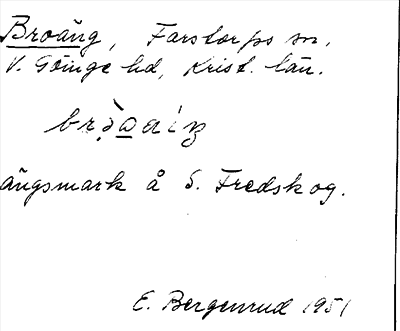 Broäng, Farstorps sn.
V. Göinge hd, Krist. län.
ängsmark å S. Fredskog.
E. Bergenrud 1951